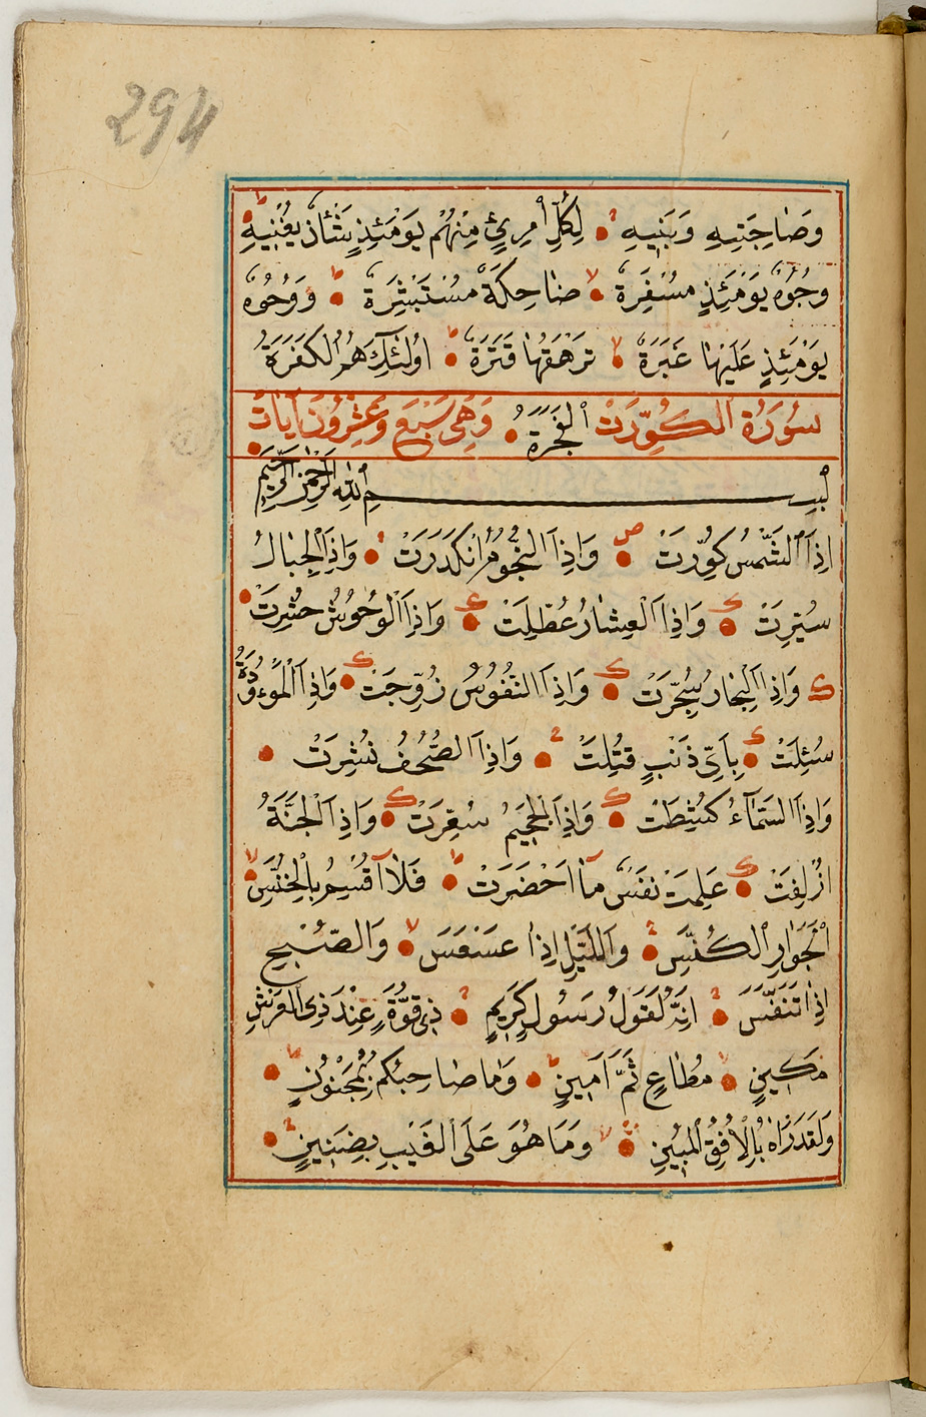 294
وَصَاحِبَتِهِ وَبَنِيهِ لِكُلِّ امْرِئٍ مِنْهُمْ يَوْمَئِذٍ شَأْنٌ يُغْنِيهِ
وُجُوهٌ يَوْمَئِذٍ مُسْفِرَةٌ ضَاحِكَةٌ مُسْتَبْشِرَةٌ وَوُجُوهٌ
يَوْمَئِذٍ عَلَيْهَا غَبَرَةٌ تَرْهَقُهَا قَتَرَةٌ اُولٰئِكَ هُمُ الْكَفَرَةُ
الْفَجَرَةُ
سُورَةُ الكُوِّرَتْ وَهِىَ سَبْعَ وَعِشْرُونَ اٰيَاتْ
بِسْمِ اللّٰهِ الرَّحْمٰنِ الرَّحِيمِ
اِذَا الشَّمْسُ كُوِّرَتْ وَاِذَا النُّجُومُ انْكَدَرَتْ وَاِذَا الْجِبَالُ
سُيِّرَتْ وَاِذَا الْعِشَارُ عُطِّلَتْ وَاِذَا الْوُحُوشُ حُشِرَتْ
وَاِذَا الْبِحَارُ سُجِّرَتْ وَاِذَا النُّفُوسُ زُوِّجَتْ وَاِذَا الْمَوْءُودَةُ
سُئِلَتْ بِاَىِّ ذَنْبٍ قُتِلَتْ وَاِذَا الصُّحُفُ نُشِرَتْ
وَاِذَا السَّمَاءُ كُشِطَتْ وَاِذَا الْجَحِيمُ سُعِّرَتْ وَاِذَا الْجَنَّةُ
اُزْلِفَتْ عَلِمَتْ نَفْسٌ مَا اَحْضَرَتْ فَلَا اُقْسِمُ بِالْخُنَّسِ
الْجَوَارِ الْكُنَّسِ وَاللَّيْلِ اِذَا عَسْعَسَ وَالصُّبْحِ
اِذَا تَنَفَّسَ اِنَّهُ لَقَوْلُ رَسُولٍ كَرِيمٍ ذِى قُوَّةٍ عِنْدَ ذِى الْعَرْشِ
مَكِينٍ مُطَاعٍ ثَمَّ اَمِينٍ وَمَا صَاحِبُكُمْ بِمَجْنُونٍ
وَلَقَدْ رَاٰهُ بِالْاُفُقِ الْمُبِينِ وَمَا هُوَ عَلَى الْغَيْبِ بِضَنِينٍ